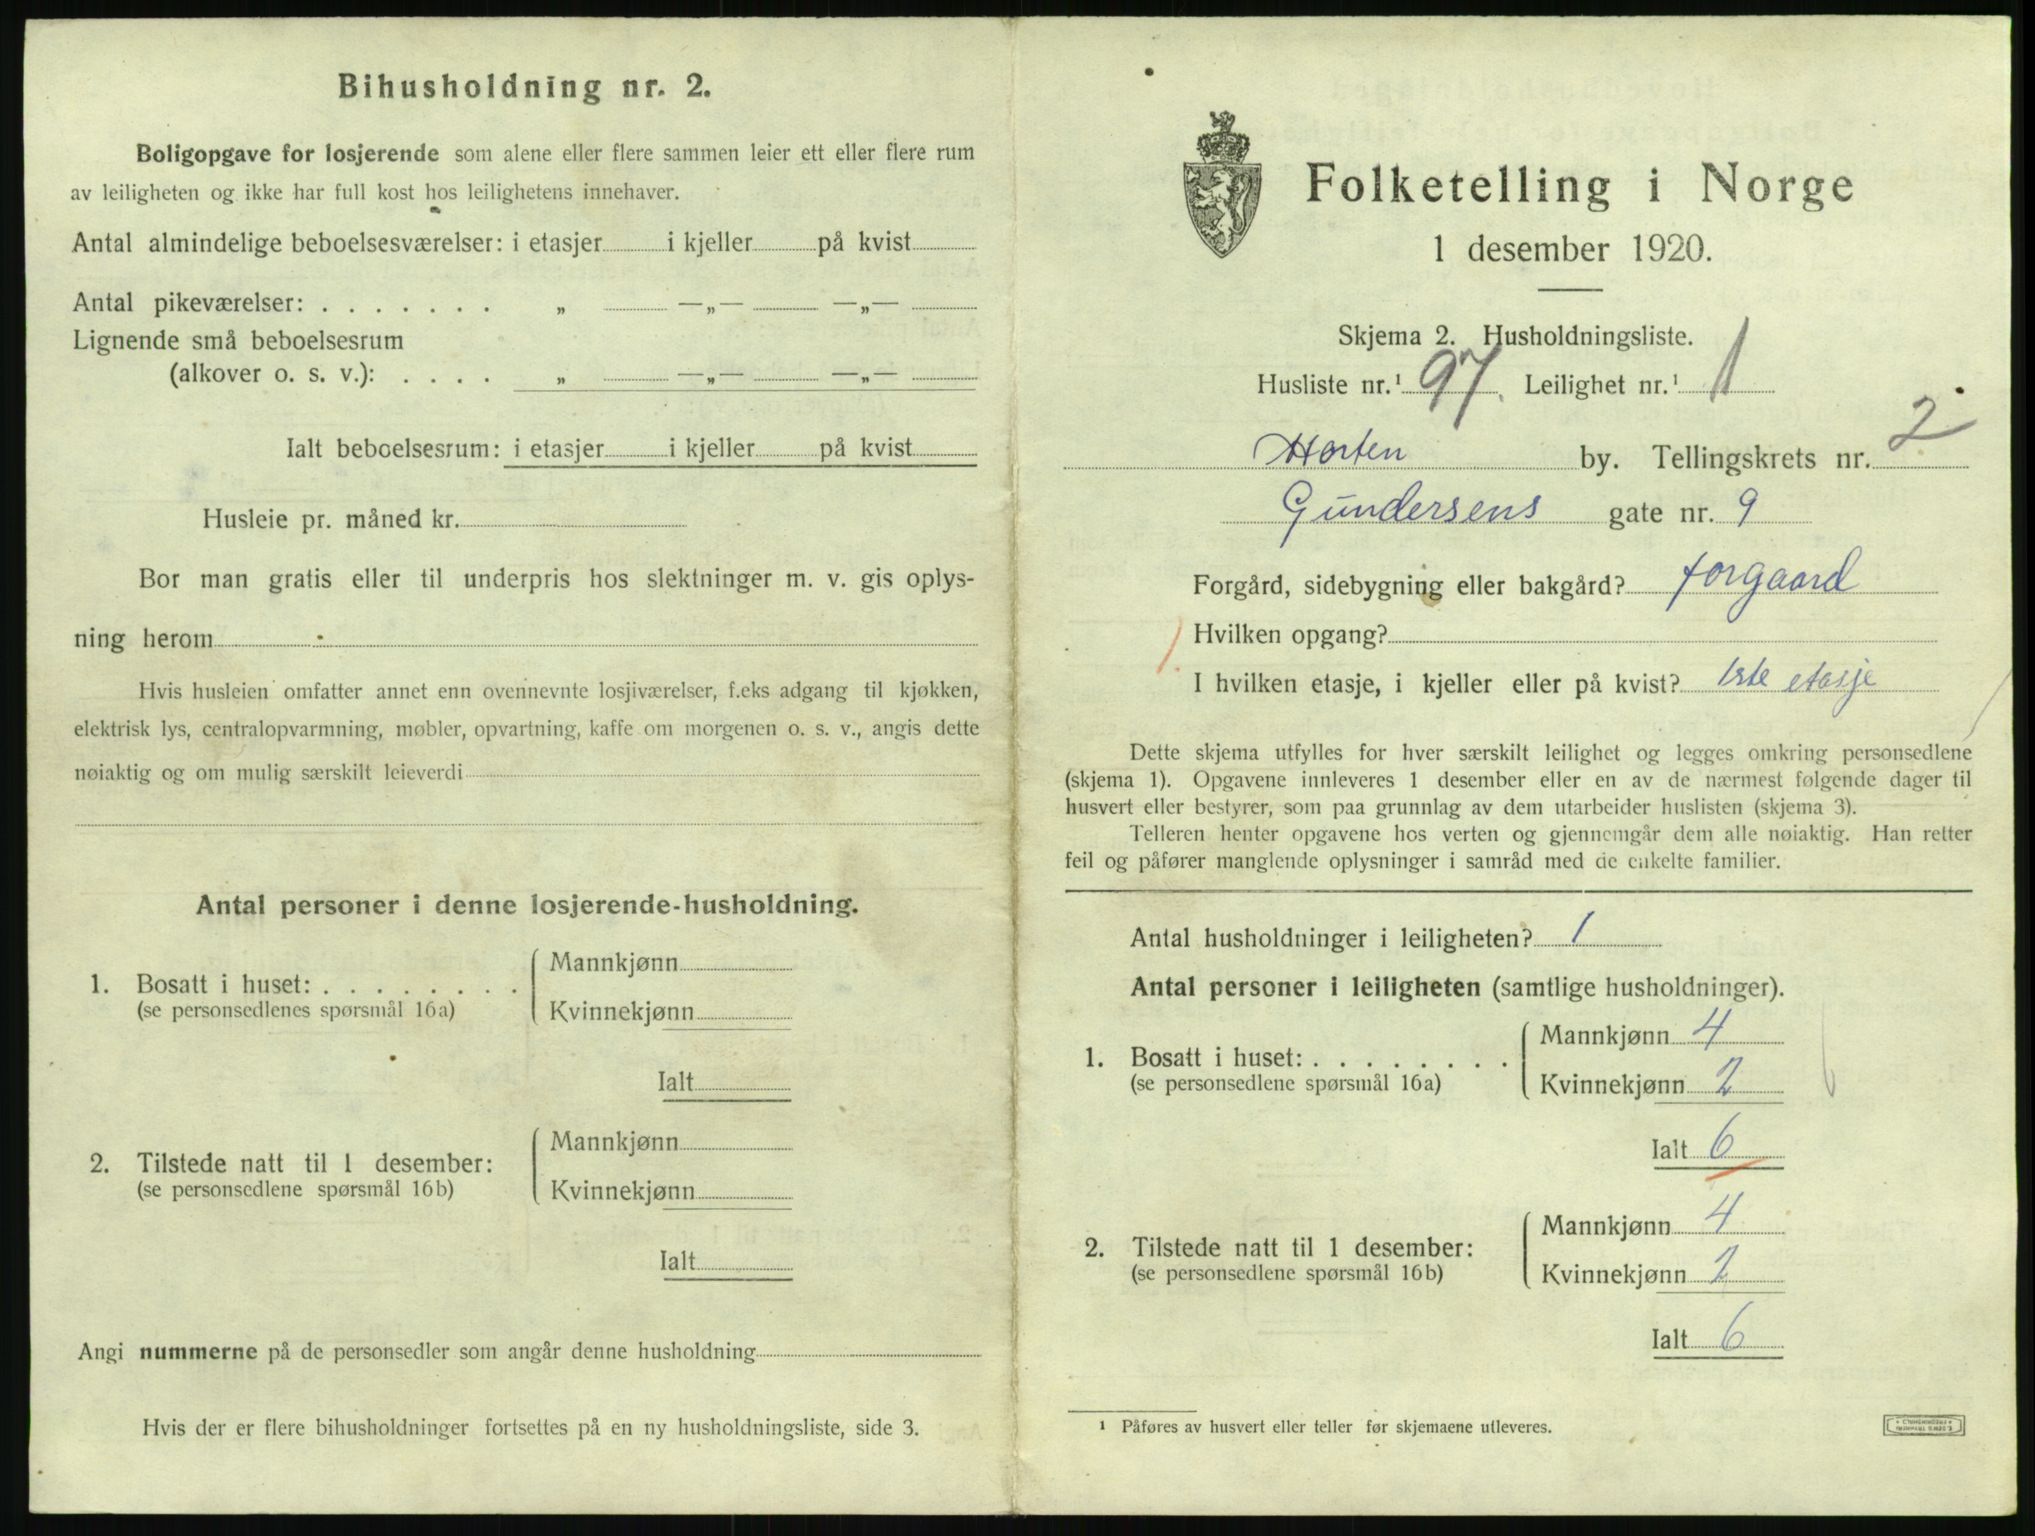 Bihusholdning nr. 2.
Boligopgave for losjerende som alene eller flere sammen leier ett eller flere rum
av leiligheten og ikke har full kost hos leilighetens innehaver.
Antal almindelige beboelsesværelser: i etasjer i kjeller på kvist
Antal pikeværelser: . . . . . . . „ —„— —„—
Lignende små beboelsesrum
(alkover o. s. v.): . . . . „ —„— —„—
Ialt beboelsesrum: i etasjer i kjeller på kvist
Husleie pr. måned kr.
Bor man gratis eller til underpris hos slektninger m. v. gis oplys-
ning herom
Hvis husleien omfatter annet enn ovennevnte losjiværelser, f.eks adgang til kjøkken,
elektrisk lys, centralopvarmning, møbler, opvartning, kaffe om morgenen o. s. v., angis dette
nøiaktig og om mulig særskilt leieverdi
Antal personer i denne losjerende-husholdning.
1. Bosatt i huset: . . . . . . . . Mannkjønn
(se personsedlenes spørsmål 16a) Kvinnekjønn
Ialt
2. Tilstede natt til 1 desember: Mannkjønn
(se personsedlene spørsmål 16b) Kvinnekjønn
Ialt
Angi nummerne på de personsedler som angår denne husholdning
Hvis der er flere bihusholdninger fortsettes på en ny husholdningsliste, side 3.
Folketelling i Norge
1 desember 1920.
Skjema 2. Husholdningsliste.
Husliste nr.¹ 97. Leilighet nr.¹ 1
Horten by. Tellingskrets nr. 2
Gundersens gate nr. 9
Forgård, sidebygning eller bakgård? forgaard
Hvilken opgang?
I hvilken etasje, i kjeller eller på kvist? 1ste etasje
Dette skjema utfylles for hver særskilt leilighet og legges omkring personsedlene
(skjema 1). Opgavene innleveres 1 desember eller en av de nærmest følgende dager til
husvert eller bestyrer, som paa grunnlag av dem utarbeider huslisten (skjema 3).
Telleren henter opgavene hos verten og gjennemgår dem alle nøiaktig. Han retter
feil og påfører manglende oplysninger i samråd med de enkelte familier.
Antal husholdninger i leiligheten? 1
Antal personer i leiligheten (samtlige husholdninger).
1. Bosatt i huset: . . . . . . . . Mannkjønn 4
(se personsedlene spørsmål 16a) Kvinnekjønn 2
Ialt 6
2. Tilstede natt til 1 desember: Mannkjønn 4
(se personsedlene spørsmål 16b) Kvinnekjønn 2
Ialt 6
¹ Påføres av husvert eller teller før skjemaene utleveres.